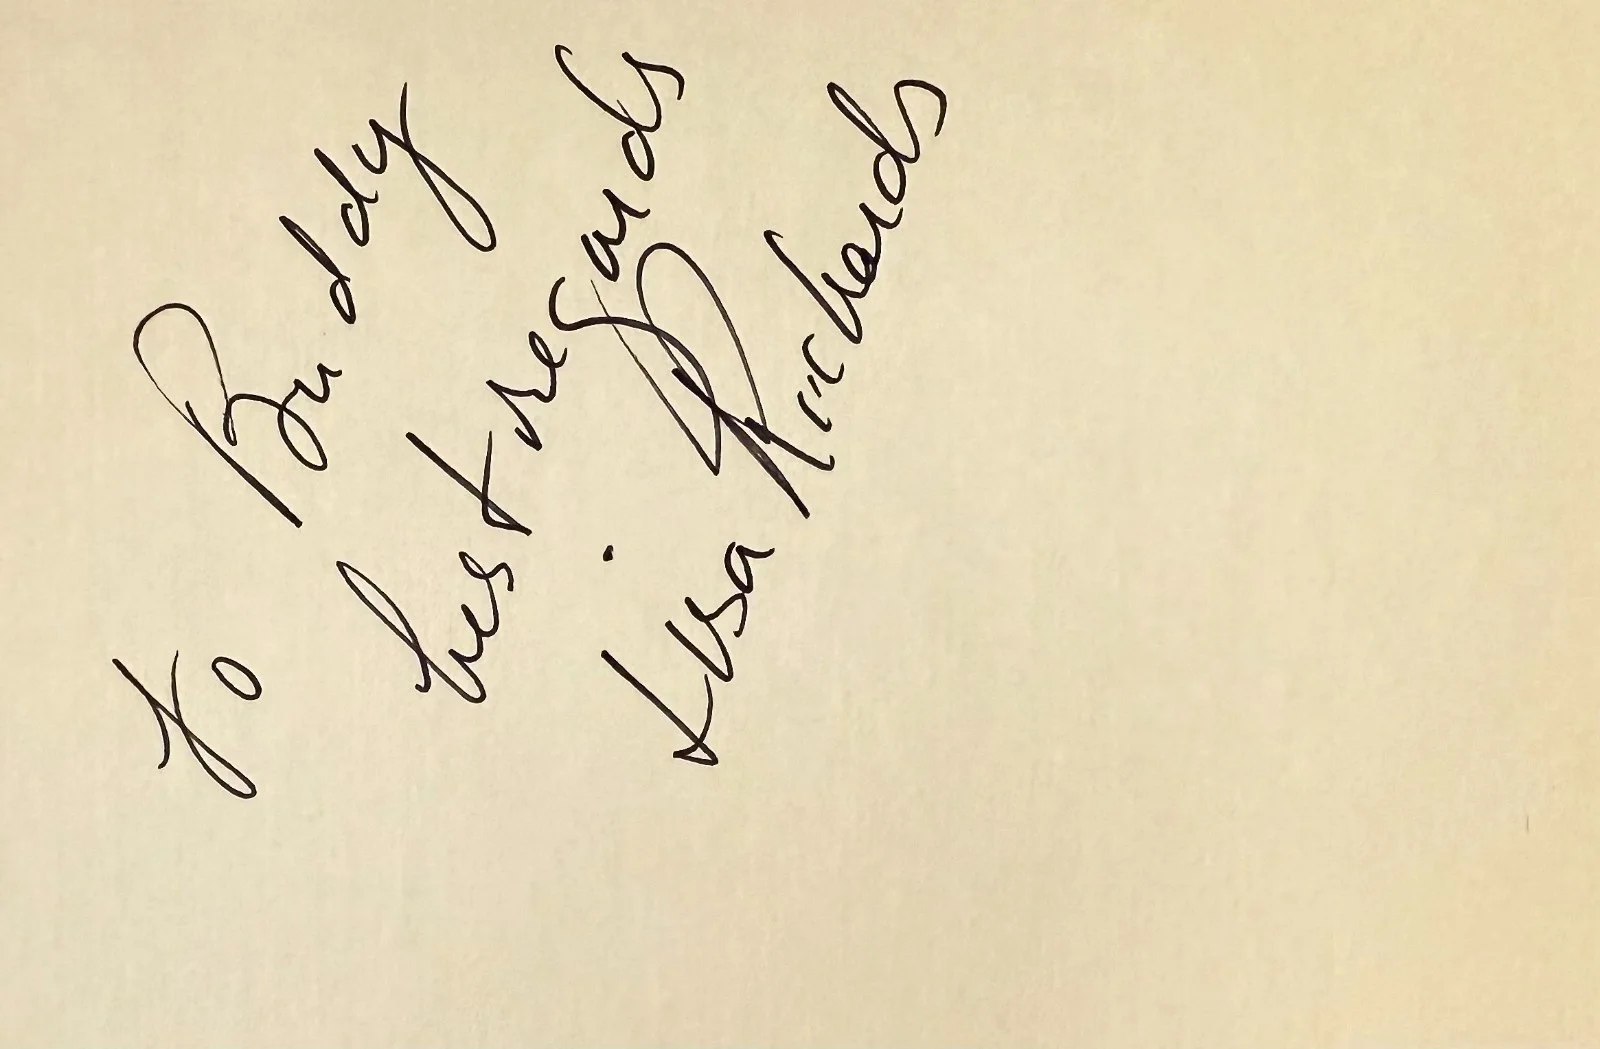 to Buddy
best regards
Lisa Richards